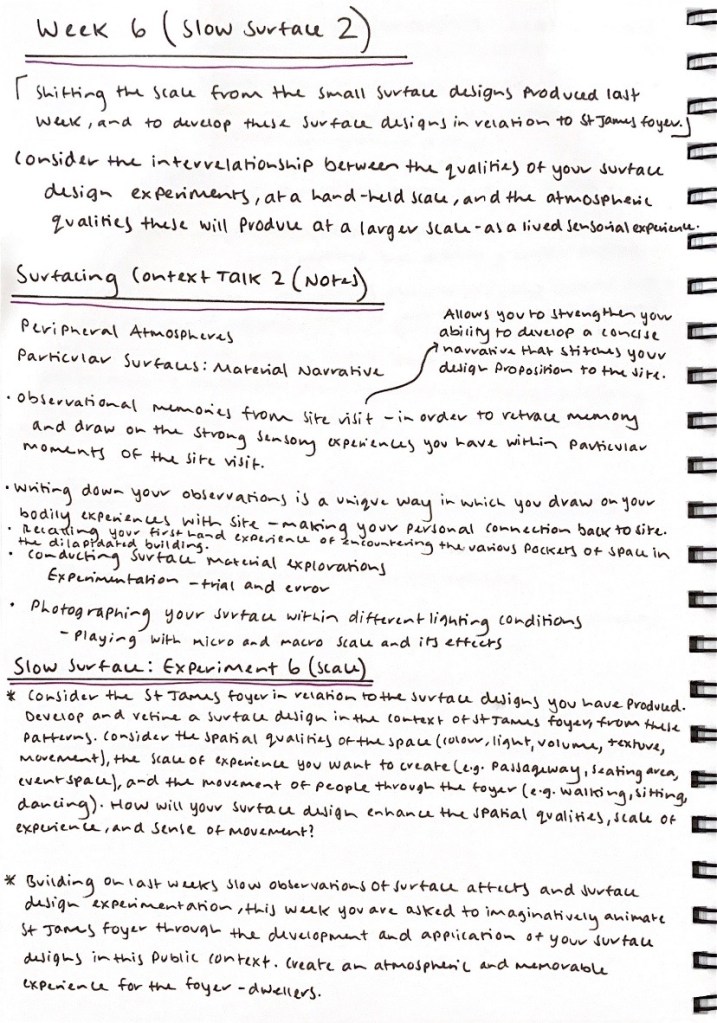 Week 6 (Slow Surface 2)
「Shifting the scale from the small surface designs produced last
week, and to develop these surface designs in relation to St James foyer.」
Consider the interrelationship between the qualities of your surface
design experiments, at a hand-held scale, and the atmospheric
qualities these will produce at a larger scale - as a lived sensorial experience.
Surfacing Context Talk 2 (Notes)
Peripheral Atmospheres
Particular Surfaces: Material Narrative
Allows you to strengthen your
ability to develop a concise
narrative that stitches your
design proposition to the site.
• Observational memories from site visit - in order to retrace memory
and draw on the strong sensory experiences you have within particular
moments of the site visit.
• Writing down your observations is a unique way in which you draw on your
bodily experiences with site - making your personal connection back to site.
• Recalling your first hand experience of encountering the various pockets of space in
the dilapidated building.
• Conducting surface material explorations
Experimentation - trial and error
• Photographing your surface within different lighting conditions
- Playing with micro and macro scale and its effects
Slow Surface: Experiment 6 (Scale)
* Consider the St James foyer in relation to the surface designs you have produced.
Develop and refine a surface design in the context of St James foyer, from these
patterns. Consider the spatial qualities of the space (colour, light, volume, texture,
movement), the scale of experience you want to create (e.g. passageway, seating area,
event space), and the movement of people through the foyer (e.g. walking, sitting,
dancing). How will your surface design enhance the spatial qualities, scale of
experience, and sense of movement?
* Building on last weeks slow observations of surface affects and surface
design experimentation, this week you are asked to imaginatively animate
St James foyer through the development and application of your surface
designs in this public context. Create an atmospheric and memorable
experience for the foyer - dwellers.